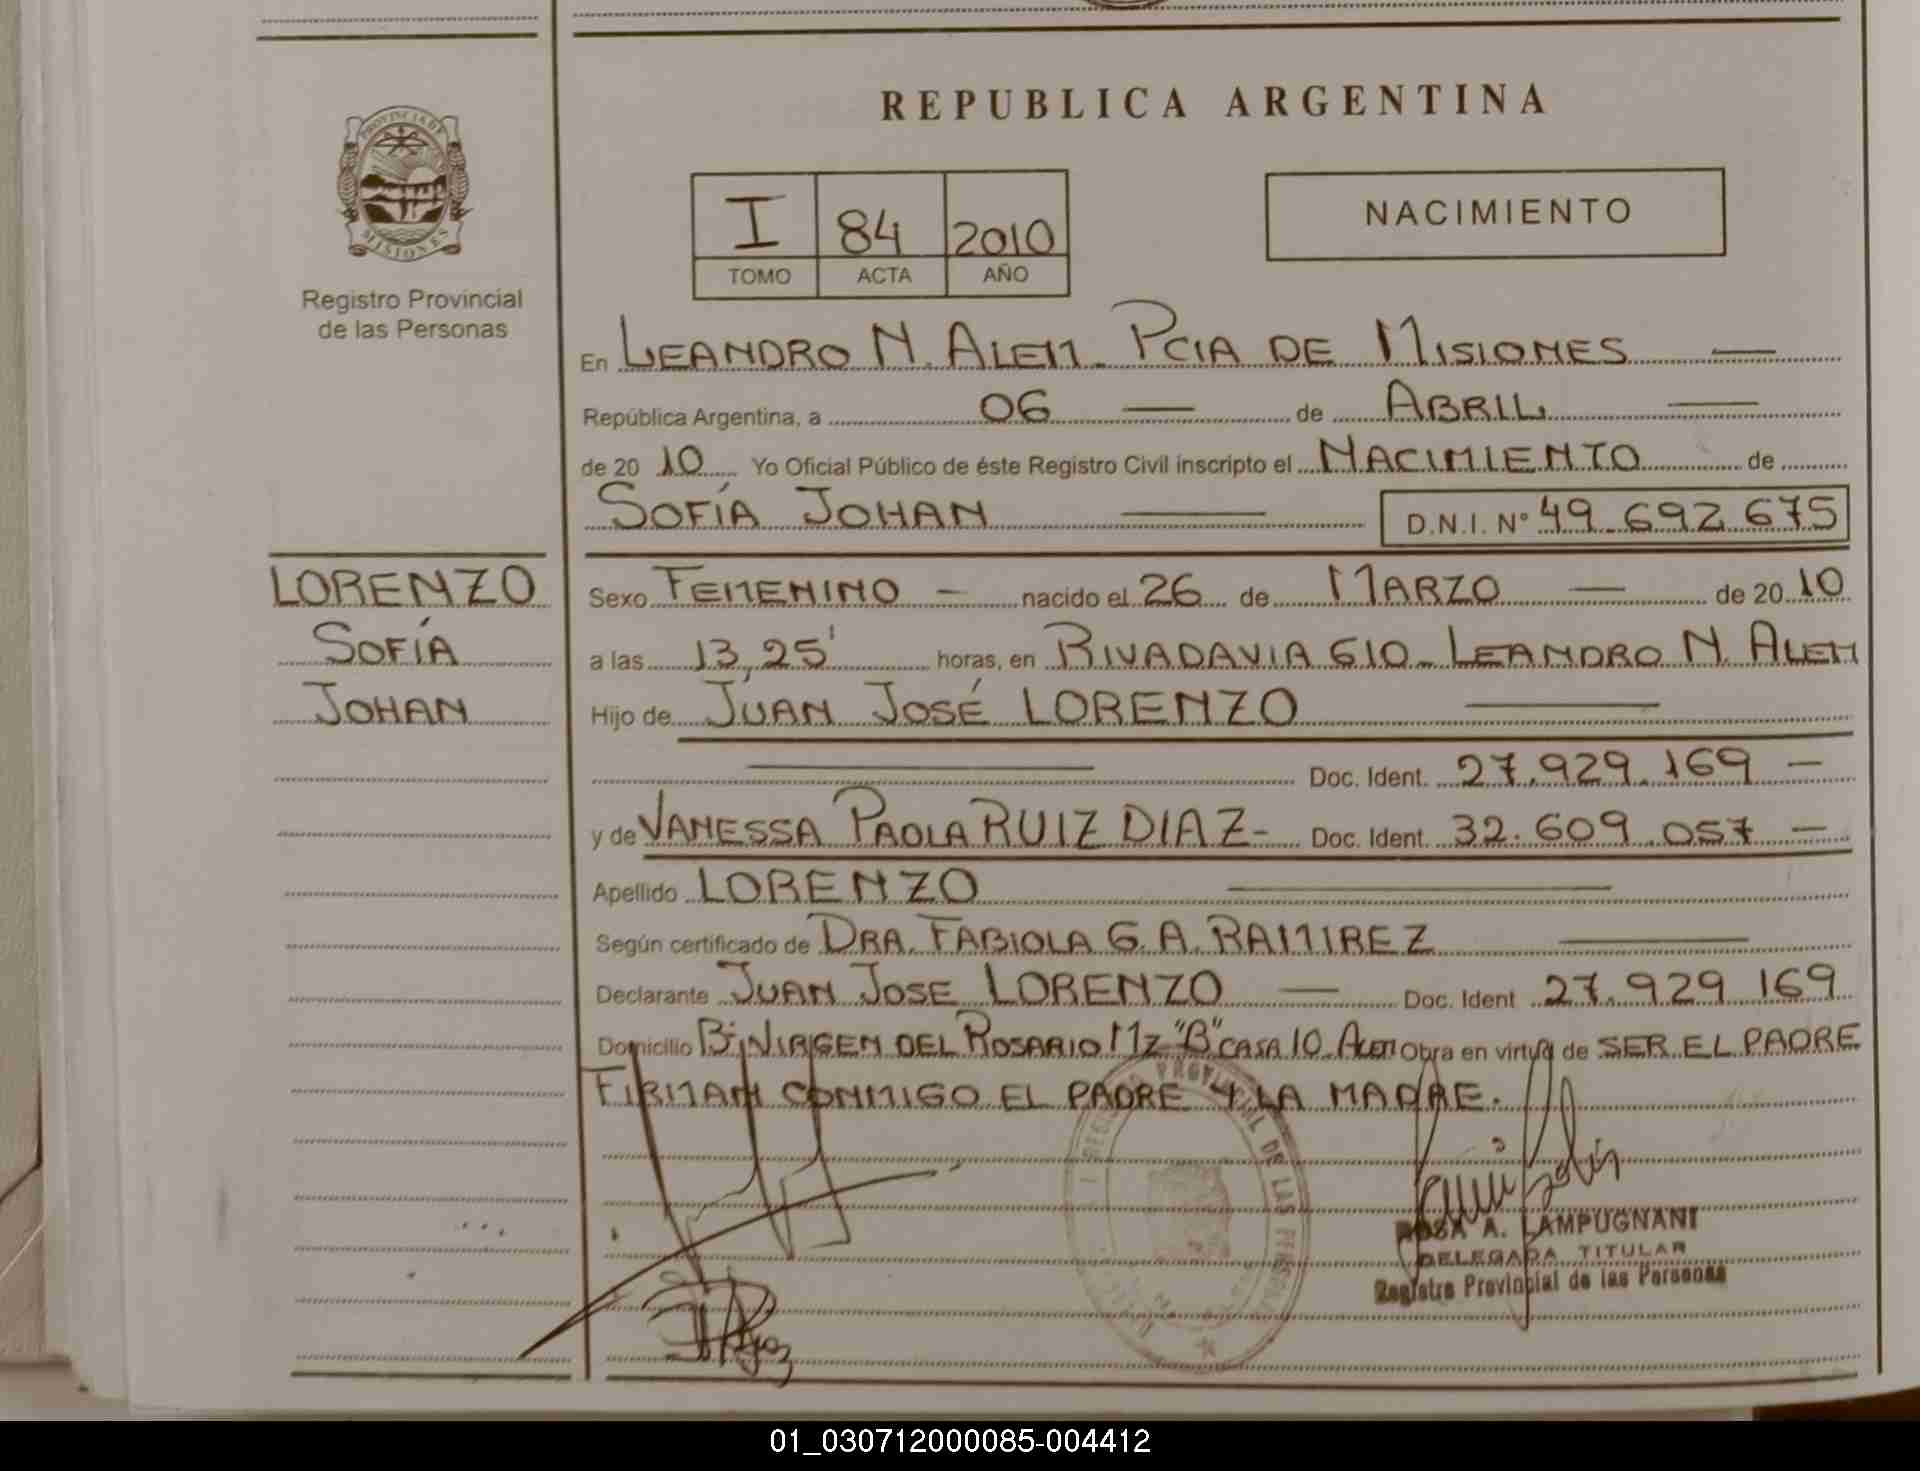 REPUBLICA ARGENTINA
PROVINCIA DE
MISIONES
Registro Provincial
de las Personas
I 84 2010
TOMO ACTA AÑO
NACIMIENTO
En LEANDRO N. ALEM - PCIA DE MISIONES —
República Argentina, a 06 — de ABRIL —
de 20 10 Yo Oficial Público de éste Registro Civil inscripto el NACIMIENTO de
SOFÍA JOHAN — D.N.I. Nº 49.692.675
LORENZO
SOFÍA
JOHAN
Sexo FEMENINO — nacido el 26 de MARZO — de 20 10
a las 13,25' horas, en RIVADAVIA 610 - LEANDRO N. ALEM
Hijo de JUAN JOSÉ LORENZO —
— Doc. Ident. 27.929.169 —
y de VANESSA PAOLA RUIZ DIAZ - Doc. Ident. 32.609.057 —
Apellido LORENZO —
Según certificado de DRA. FABIOLA G. A. RAMIREZ —
Declarante JUAN JOSE LORENZO — Doc. Ident 27.929 169
Domicilio Bº VIRGEN DEL ROSARIO Mz "B" CASA 10 - ALEM Obra en virtud de SER EL PADRE
FIRMAN CONMIGO EL PADRE Y LA MADRE.
ROSA A. LAMPUGNANI
DELEGADA TITULAR
Registro Provincial de las Personas
01_030712000085-004412